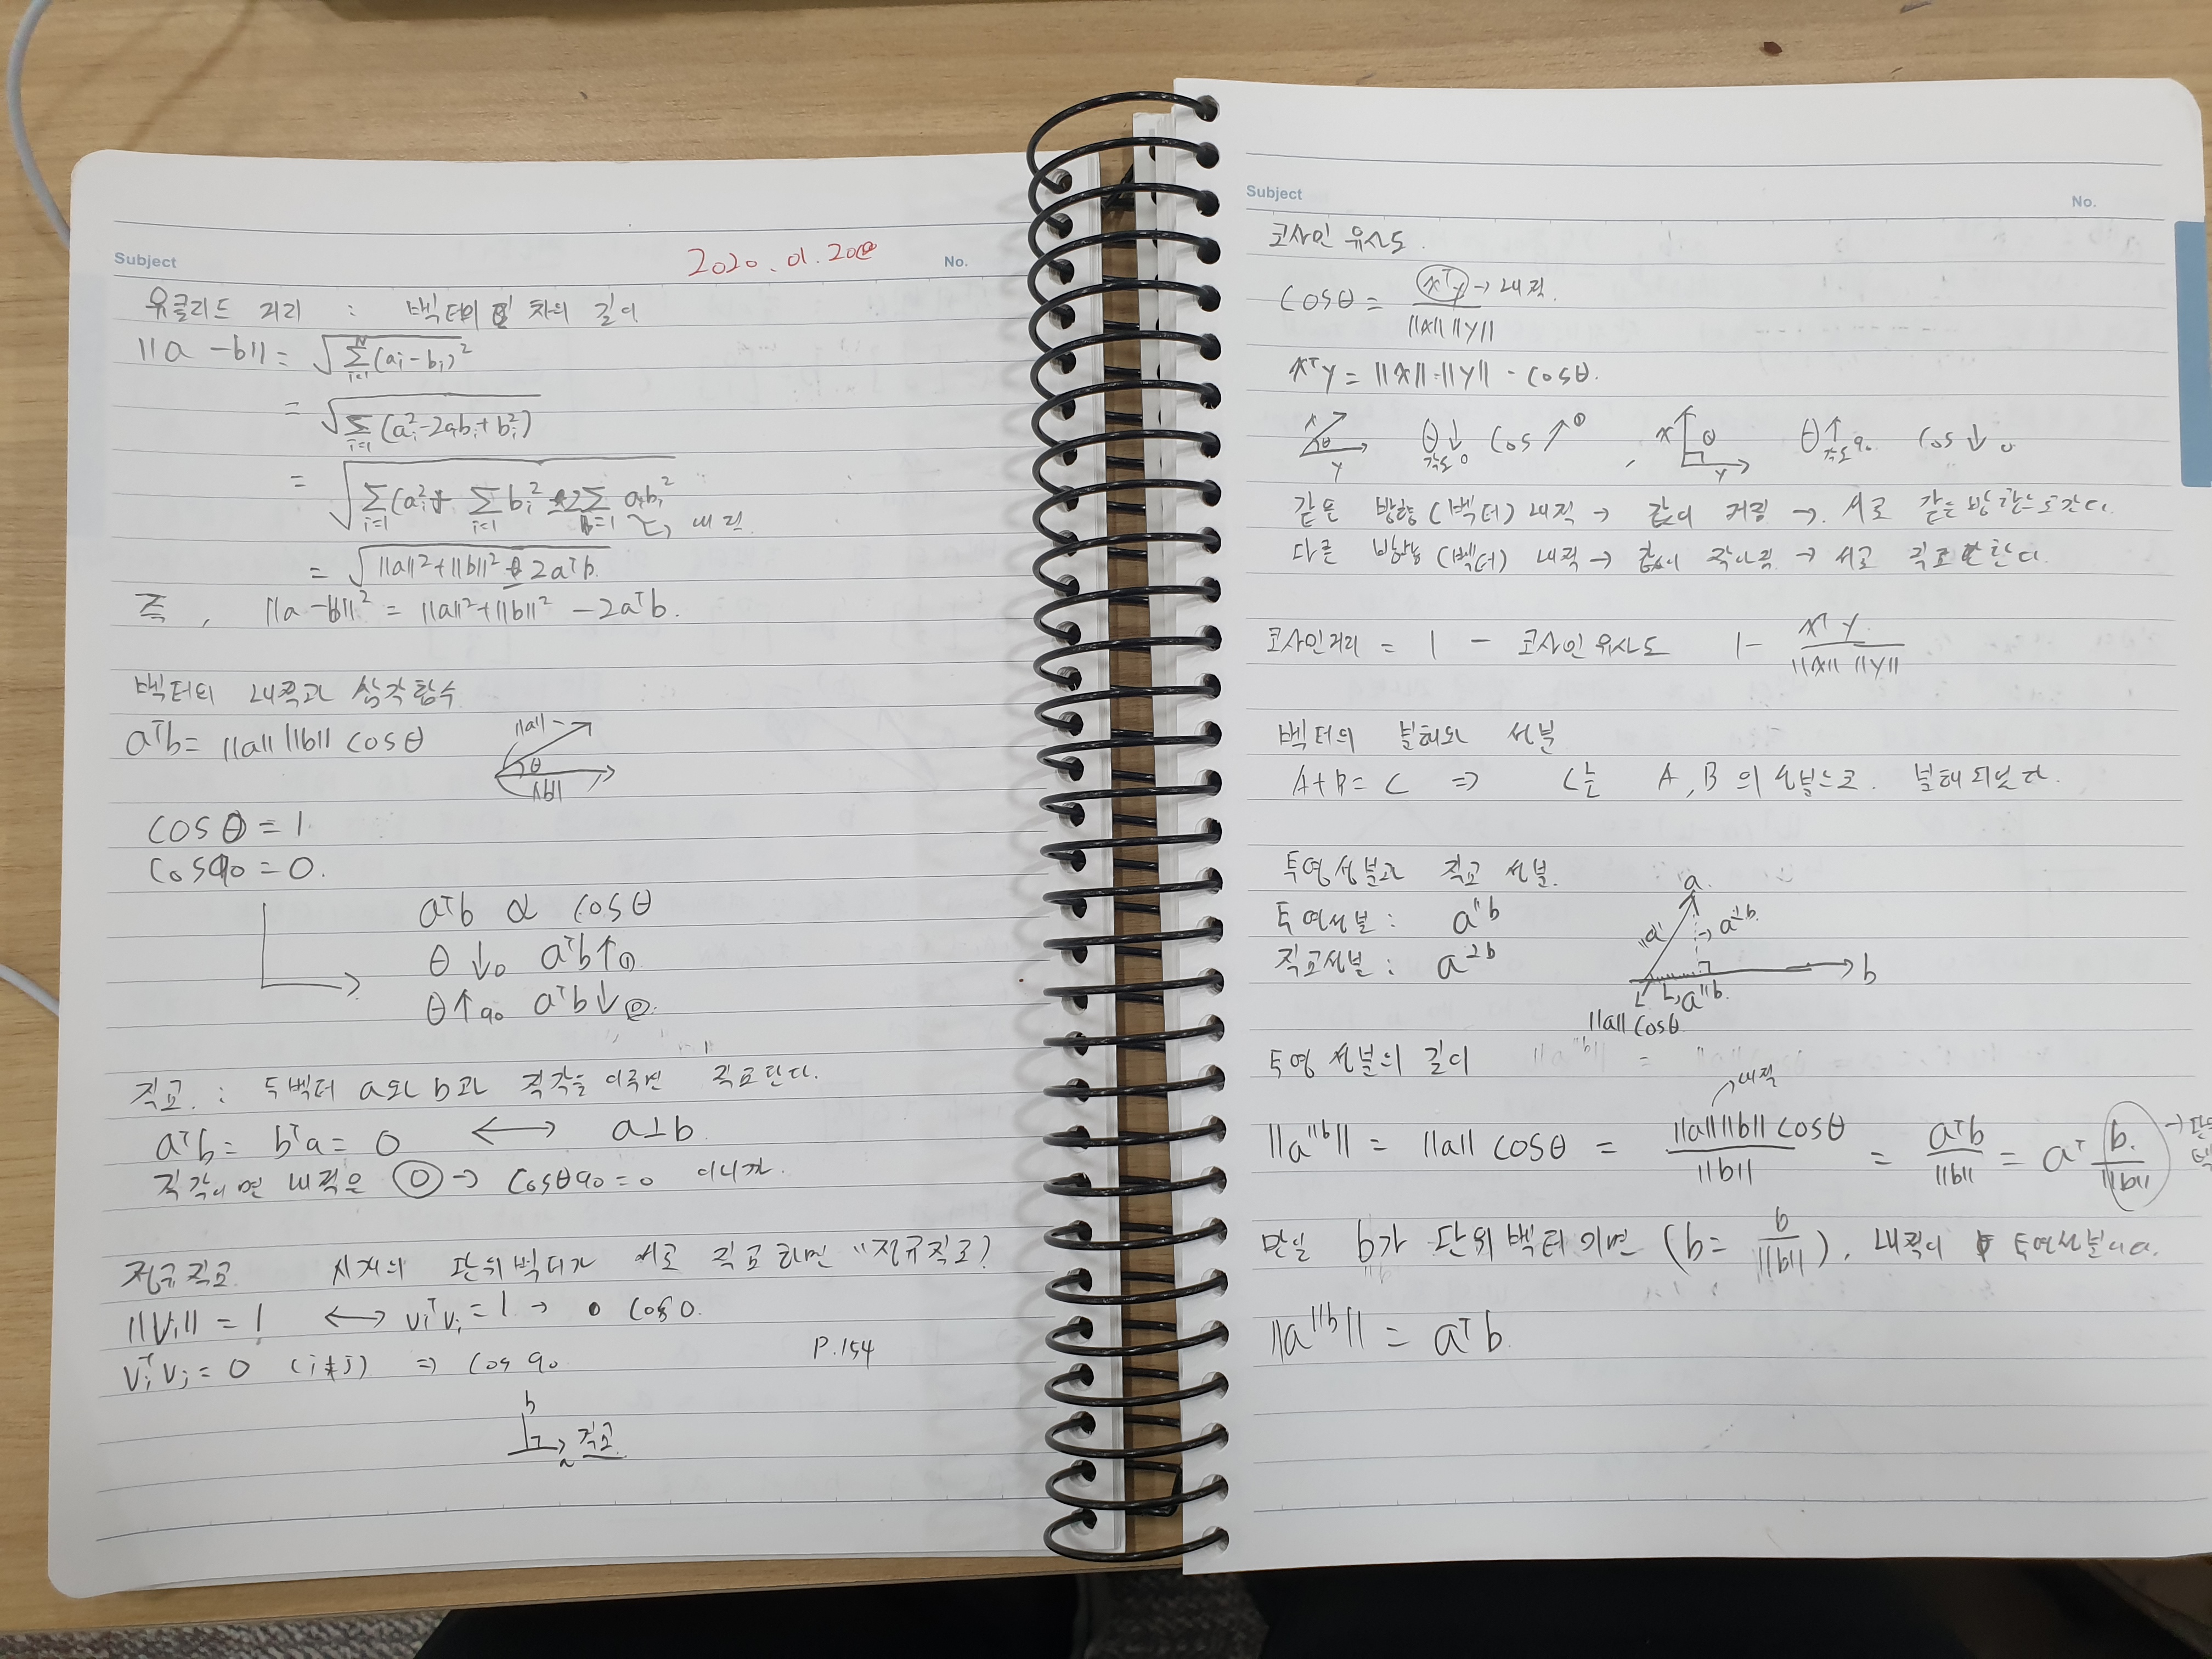 Subject 2020.01.20 No.
유클리드 거리 : 벡터의 차의 길이
||a - b|| = √Σ_{i=1}^{N} (aᵢ - bᵢ)²
= √Σ_{i=1} (aᵢ² - 2aᵢbᵢ + bᵢ²)
= √Σ_{i=1} (aᵢ² + Σ_{i=1} bᵢ² - 2Σ_{i=1} aᵢbᵢ² → 내적
= √||a||² + ||b||² - 2aᵀb
즉, ||a - b||² = ||a||² + ||b||² - 2aᵀb.
벡터의 내적과 삼각함수
aᵀb = ||a|| ||b|| cosθ ||a|| θ ||b||
cosθ = 1
cos90 = 0.
aᵀb ∝ cosθ
θ ↓0 aᵀb ↑①
θ ↑90 aᵀb ↓⓪
직교 : 두벡터 a와 b과 직각을 이루면 직교한다.
aᵀb = bᵀa = 0 ⟷ a⊥b
직각이면 내적은 ⓪ → cosθ90 = 0 이니까.
정규직교 N개의 단위벡터가 서로 직교하면 "정규직교?
||Vᵢ|| = 1 ⟷ vᵢᵀvᵢ = 1 → cos0.
vᵢᵀvⱼ = 0 (i≠j) ⇒ cos90
P.154
b
a 직교
Subject No.
코사인 유사도.
cosθ = xᵀy → 내적. / ||x|| ||y||
xᵀy = ||x||·||y||·cosθ.
x θ y θ↓ 각도0 cos↗① , x θ y θ↑ 각도90 cos↓0
같은 방향(벡터) 내적 → 값이 커짐 → 서로 같은방향으로간다.
다른 방향(벡터) 내적 → 값이 작아짐 → 서로 직교한다.
코사인거리 = 1 - 코사인유사도 1 - xᵀy / ||x|| ||y||
벡터의 분해와 성분
A+B=C ⇒ C는 A, B의 성분으로 분해되었다.
투영성분과 직교성분.
투영성분 : a^{∥b}
직교성분 : a^{⊥b}
a "a" → a^{⊥b} b
→ a^{∥b}.
||a|| cosθ
투영성분의 길이
||a^{∥b}|| = ||a|| cosθ = ||a|| ||b|| cosθ → 내적 / ||b|| = aᵀb / ||b|| = aᵀ b / ||b|| →
만일 b가 단위벡터이면 (b = b / ||b||), 내적이 투영성분이다.
||a^{∥b}|| = aᵀb